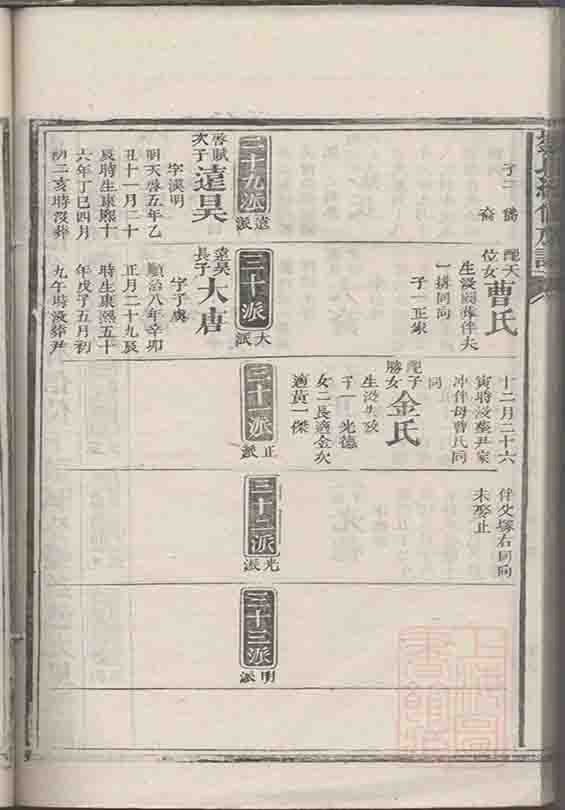 子二
配天
位女
曹氏
生歿葬伴夫
一排同向
子一正
十二月二十六
寅時歿葬尹家
冲伴母曹氏同
同
配子
勝女
金氏
生歿失攷
子一光德
女二長適金次
適黃一傑
伴父塚右同向
未娶止
二十九派
遠派
三十派
大派
三十一派
正派
三十二派
光派
三十三派
明派
啓賦
次子
遠昊
字漢明
明天啓五年乙
丑十一月二十
辰時生康熙十
六年丁巳四月
初二亥時歿葬
遠昊
長子
大唐
字子虞
順治八年辛卯
正月二十九辰
時生康熙五十
年戊子五月初
九午時歿葬尹